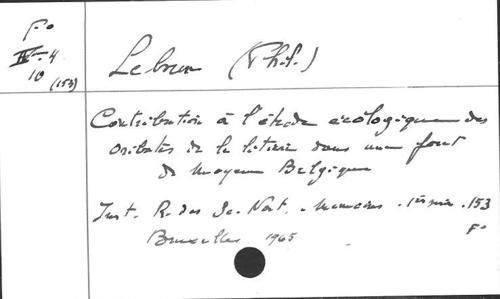 Fo
IV-4
10
(153)
Lebrun (Ph.)
Contribution à l'étude écologique des
oribates de la litière dans une forêt
de moyenne Belgique
Inst. R. des Sc. Nat. - Mémoires. 1ère série. 153
Bruxelles 1965
Fo